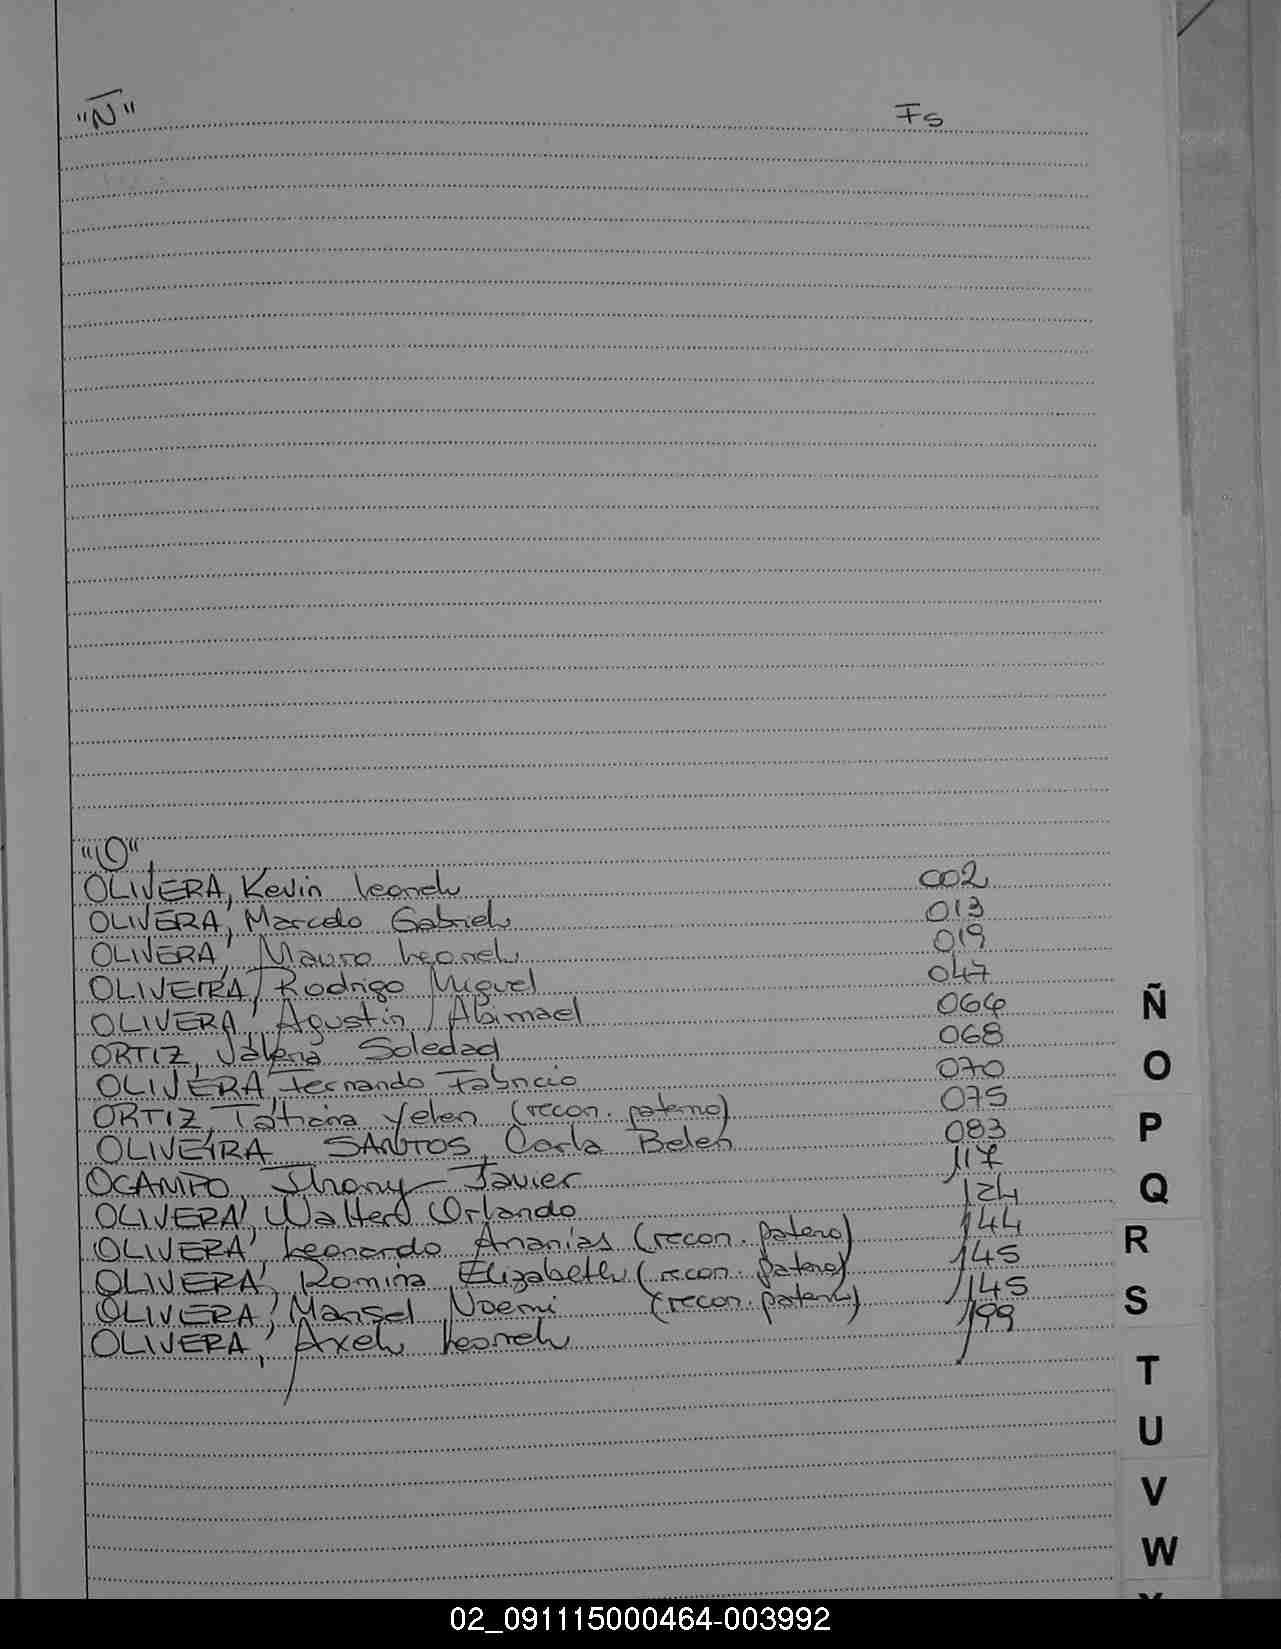 "Ñ" Fs
"O"
OLIVERA, Kevin Leonel 002
OLIVERA, Marcelo Gabriel 013
OLIVERA, Mauro Leonel 019
OLIVEIRA, Rodrigo Miguel 047
OLIVERA, Agustin Abimael 064
ORTIZ, Valeria Soledad 068
OLIVERA Fernando Fabricio 070
ORTIZ, Tatiana Yelen (recon. paterno) 075
OLIVEIRA SANTOS, Carla Belen 083
OCAMPO, Jhony Javier 117
OLIVERA, Walter Orlando 124
OLIVERA, Leonardo Ananias (recon. paterno) 144
OLIVERA, Romina Elizabeth (recon. paterno) 145
OLIVERA, Marisel Noemi (recon. paterno) 145
OLIVERA, Axel Leonel 199
Ñ
O
P
Q
R
S
T
U
V
W
02_091115000464-003992